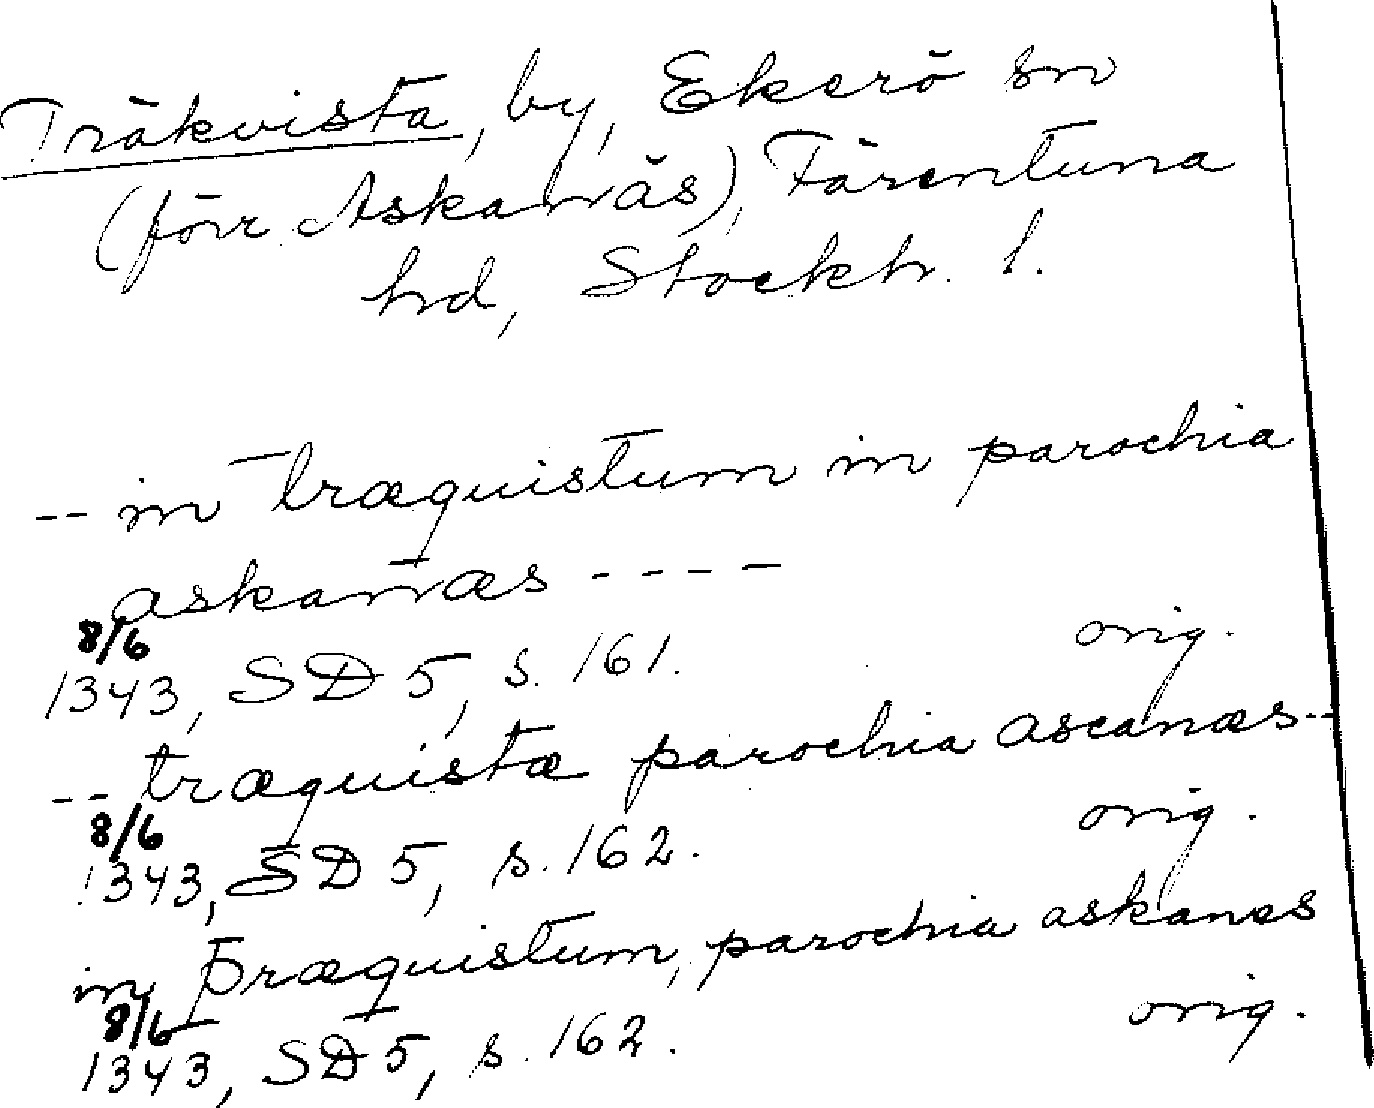 Träkvista, by, Ekerö sn
(förr Askanäs), Färentuna
hrd, Stockh. l.
-- in træquistum in parochia
askanæs ----
8/6
1343, SD 5, s. 161. orig.
-- træquistæ parochia ascanæs --
8/6
1343, SD 5, s. 162. orig.
in þræquistum, parochia askanes
8/6
1343, SD 5, s. 162. orig.